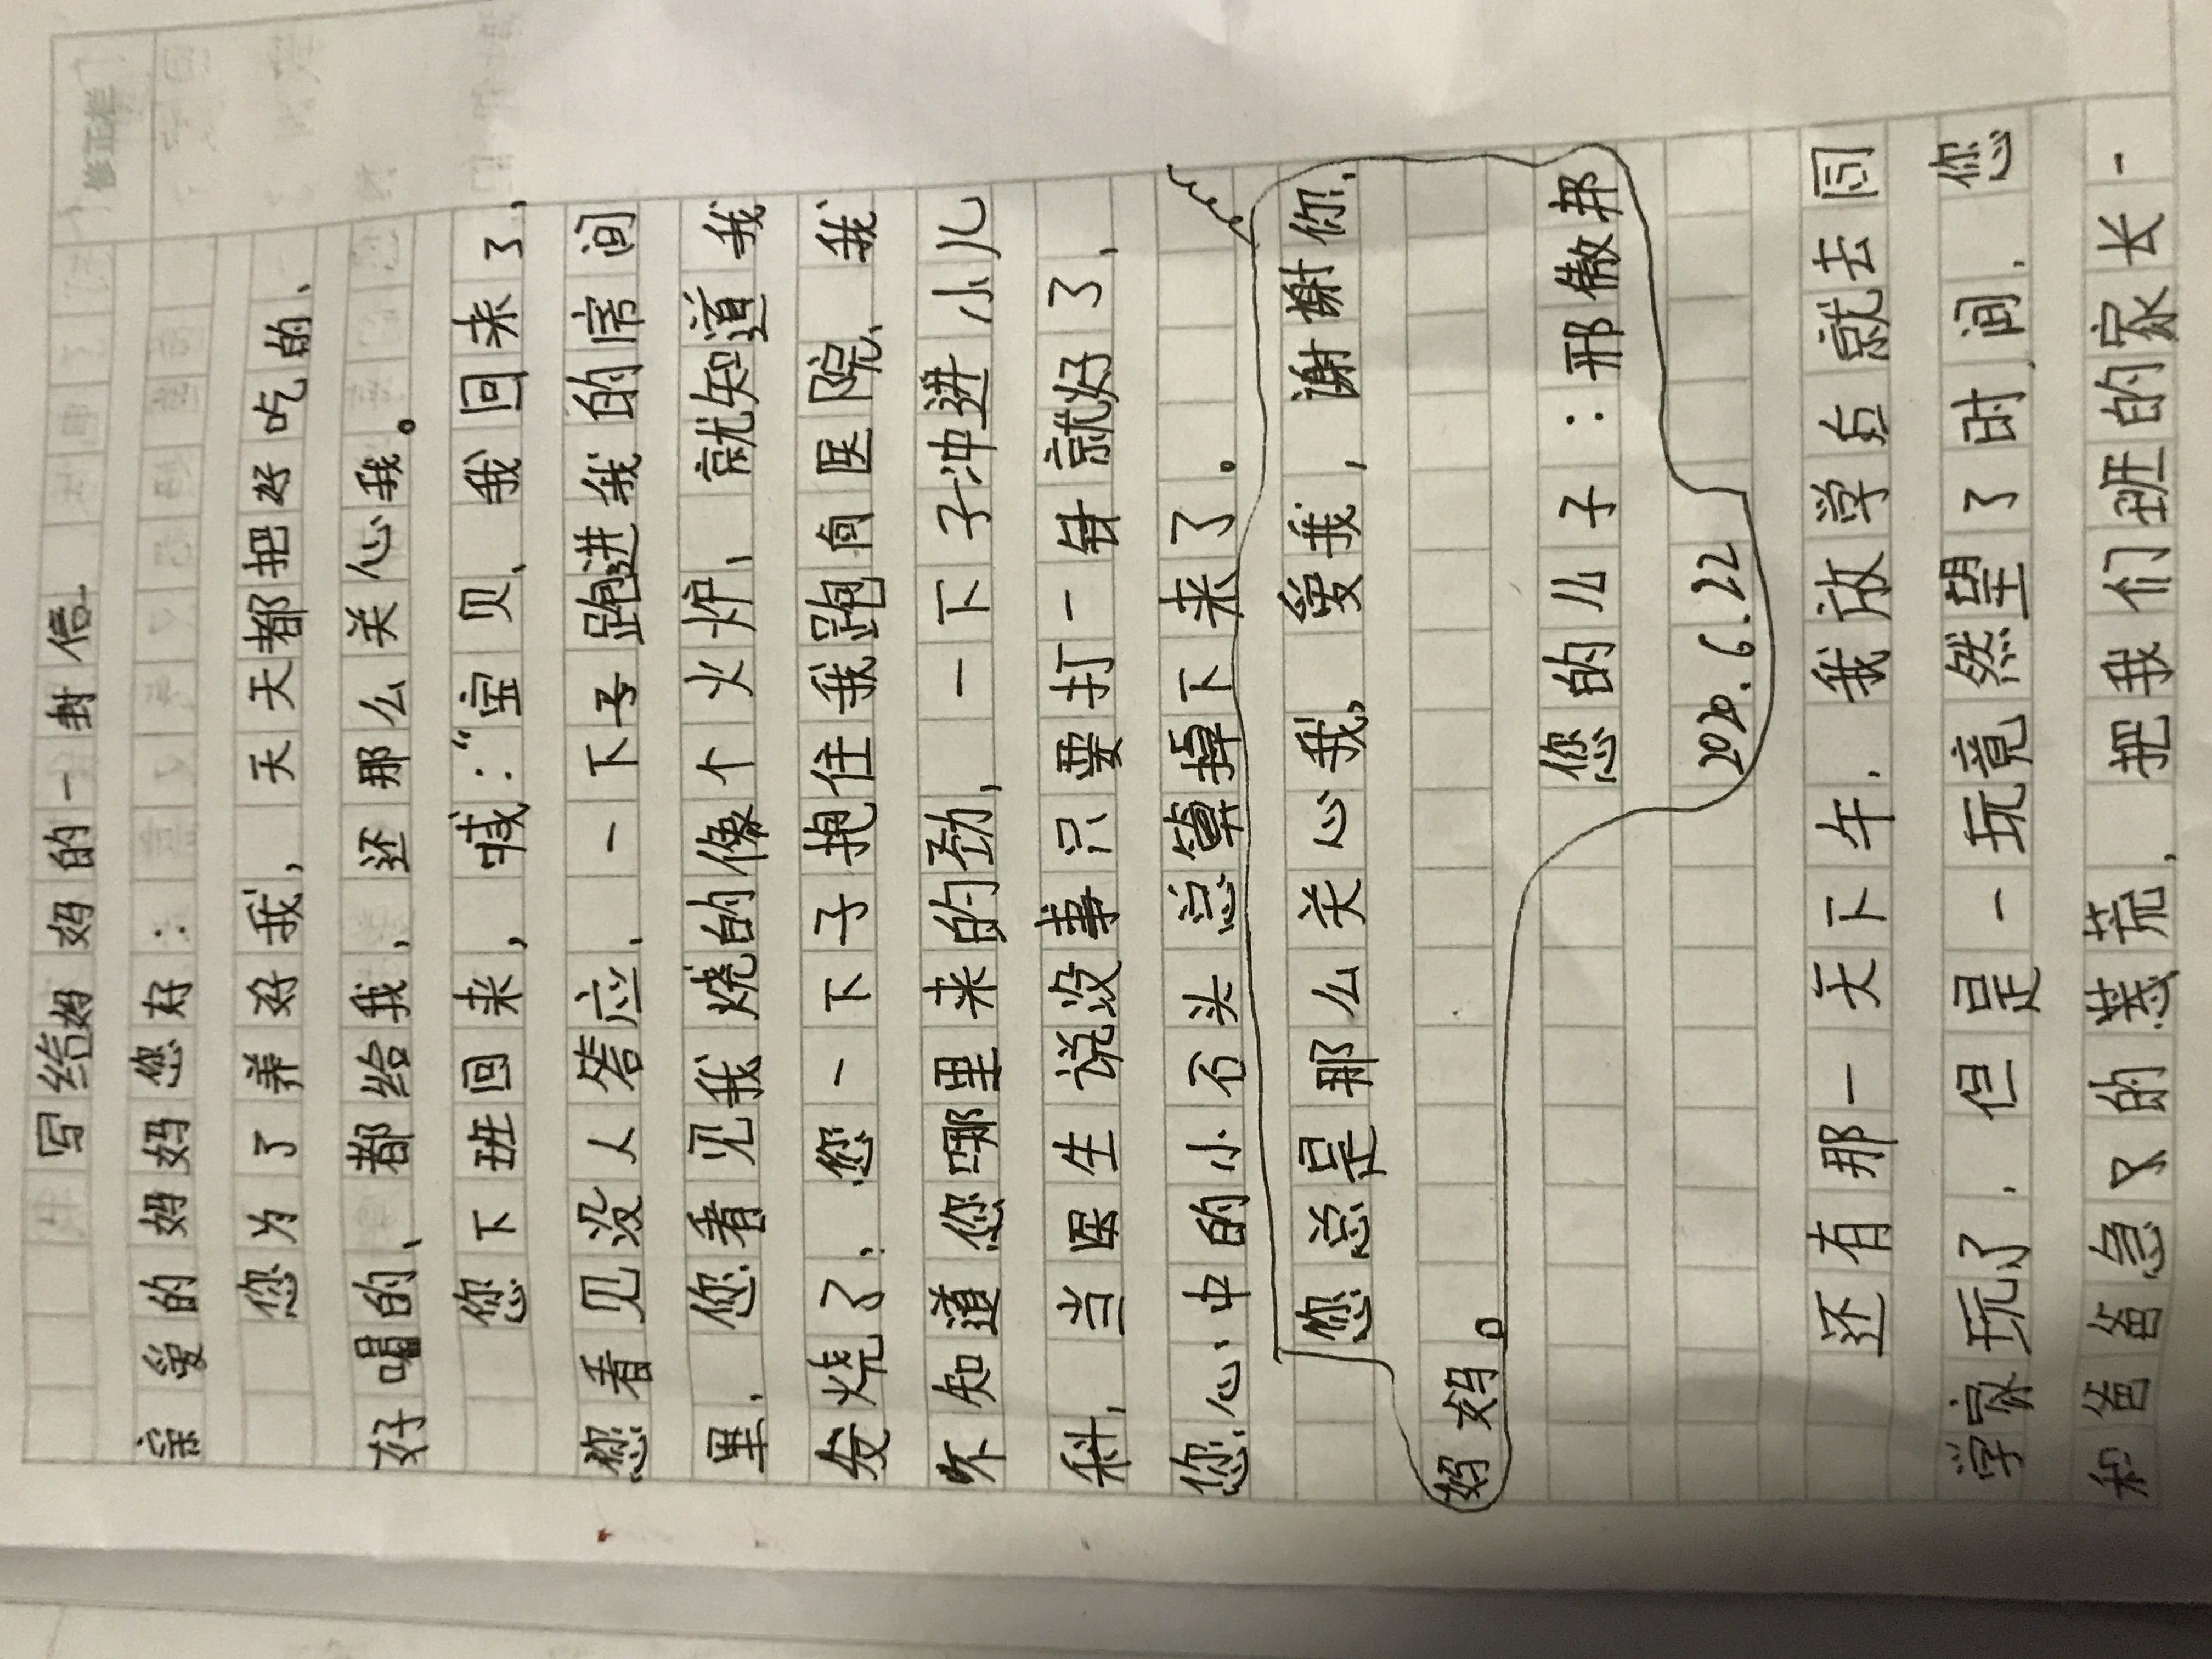 写给妈妈的一封信
亲爱的妈妈您好:
您为了养好我,天天都把好吃的、
好喝的、都给我,还那么关心我。
您下班回来,喊:“宝贝、我回来了,
您看见没人答应,一下子跑进我的房间
里,您看见我烧的像个火炉、就知道我
发烧了,您一下子抱住我跑向医院、我
不知道您哪里来的劲,一下子冲进小儿
科,当医生说没事只要打一针就好了,
您心中的小石头总算掉下来了。
您总是那么关心我,爱我,谢谢你,
妈妈。
您的儿子:邢傲邦
2020.6.22
还有那一天下午,我放学后就去同
学家玩了,但是一玩竟然望了时间,您
和爸爸急又的慈荒,把我们班的家长一